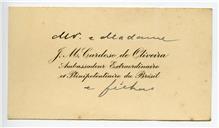 Mr. e Madame
J. M. Cardoso de Oliveira
Ambassadeur Extraordinaire
et Plénipotentiaire du Brésil
e filhas